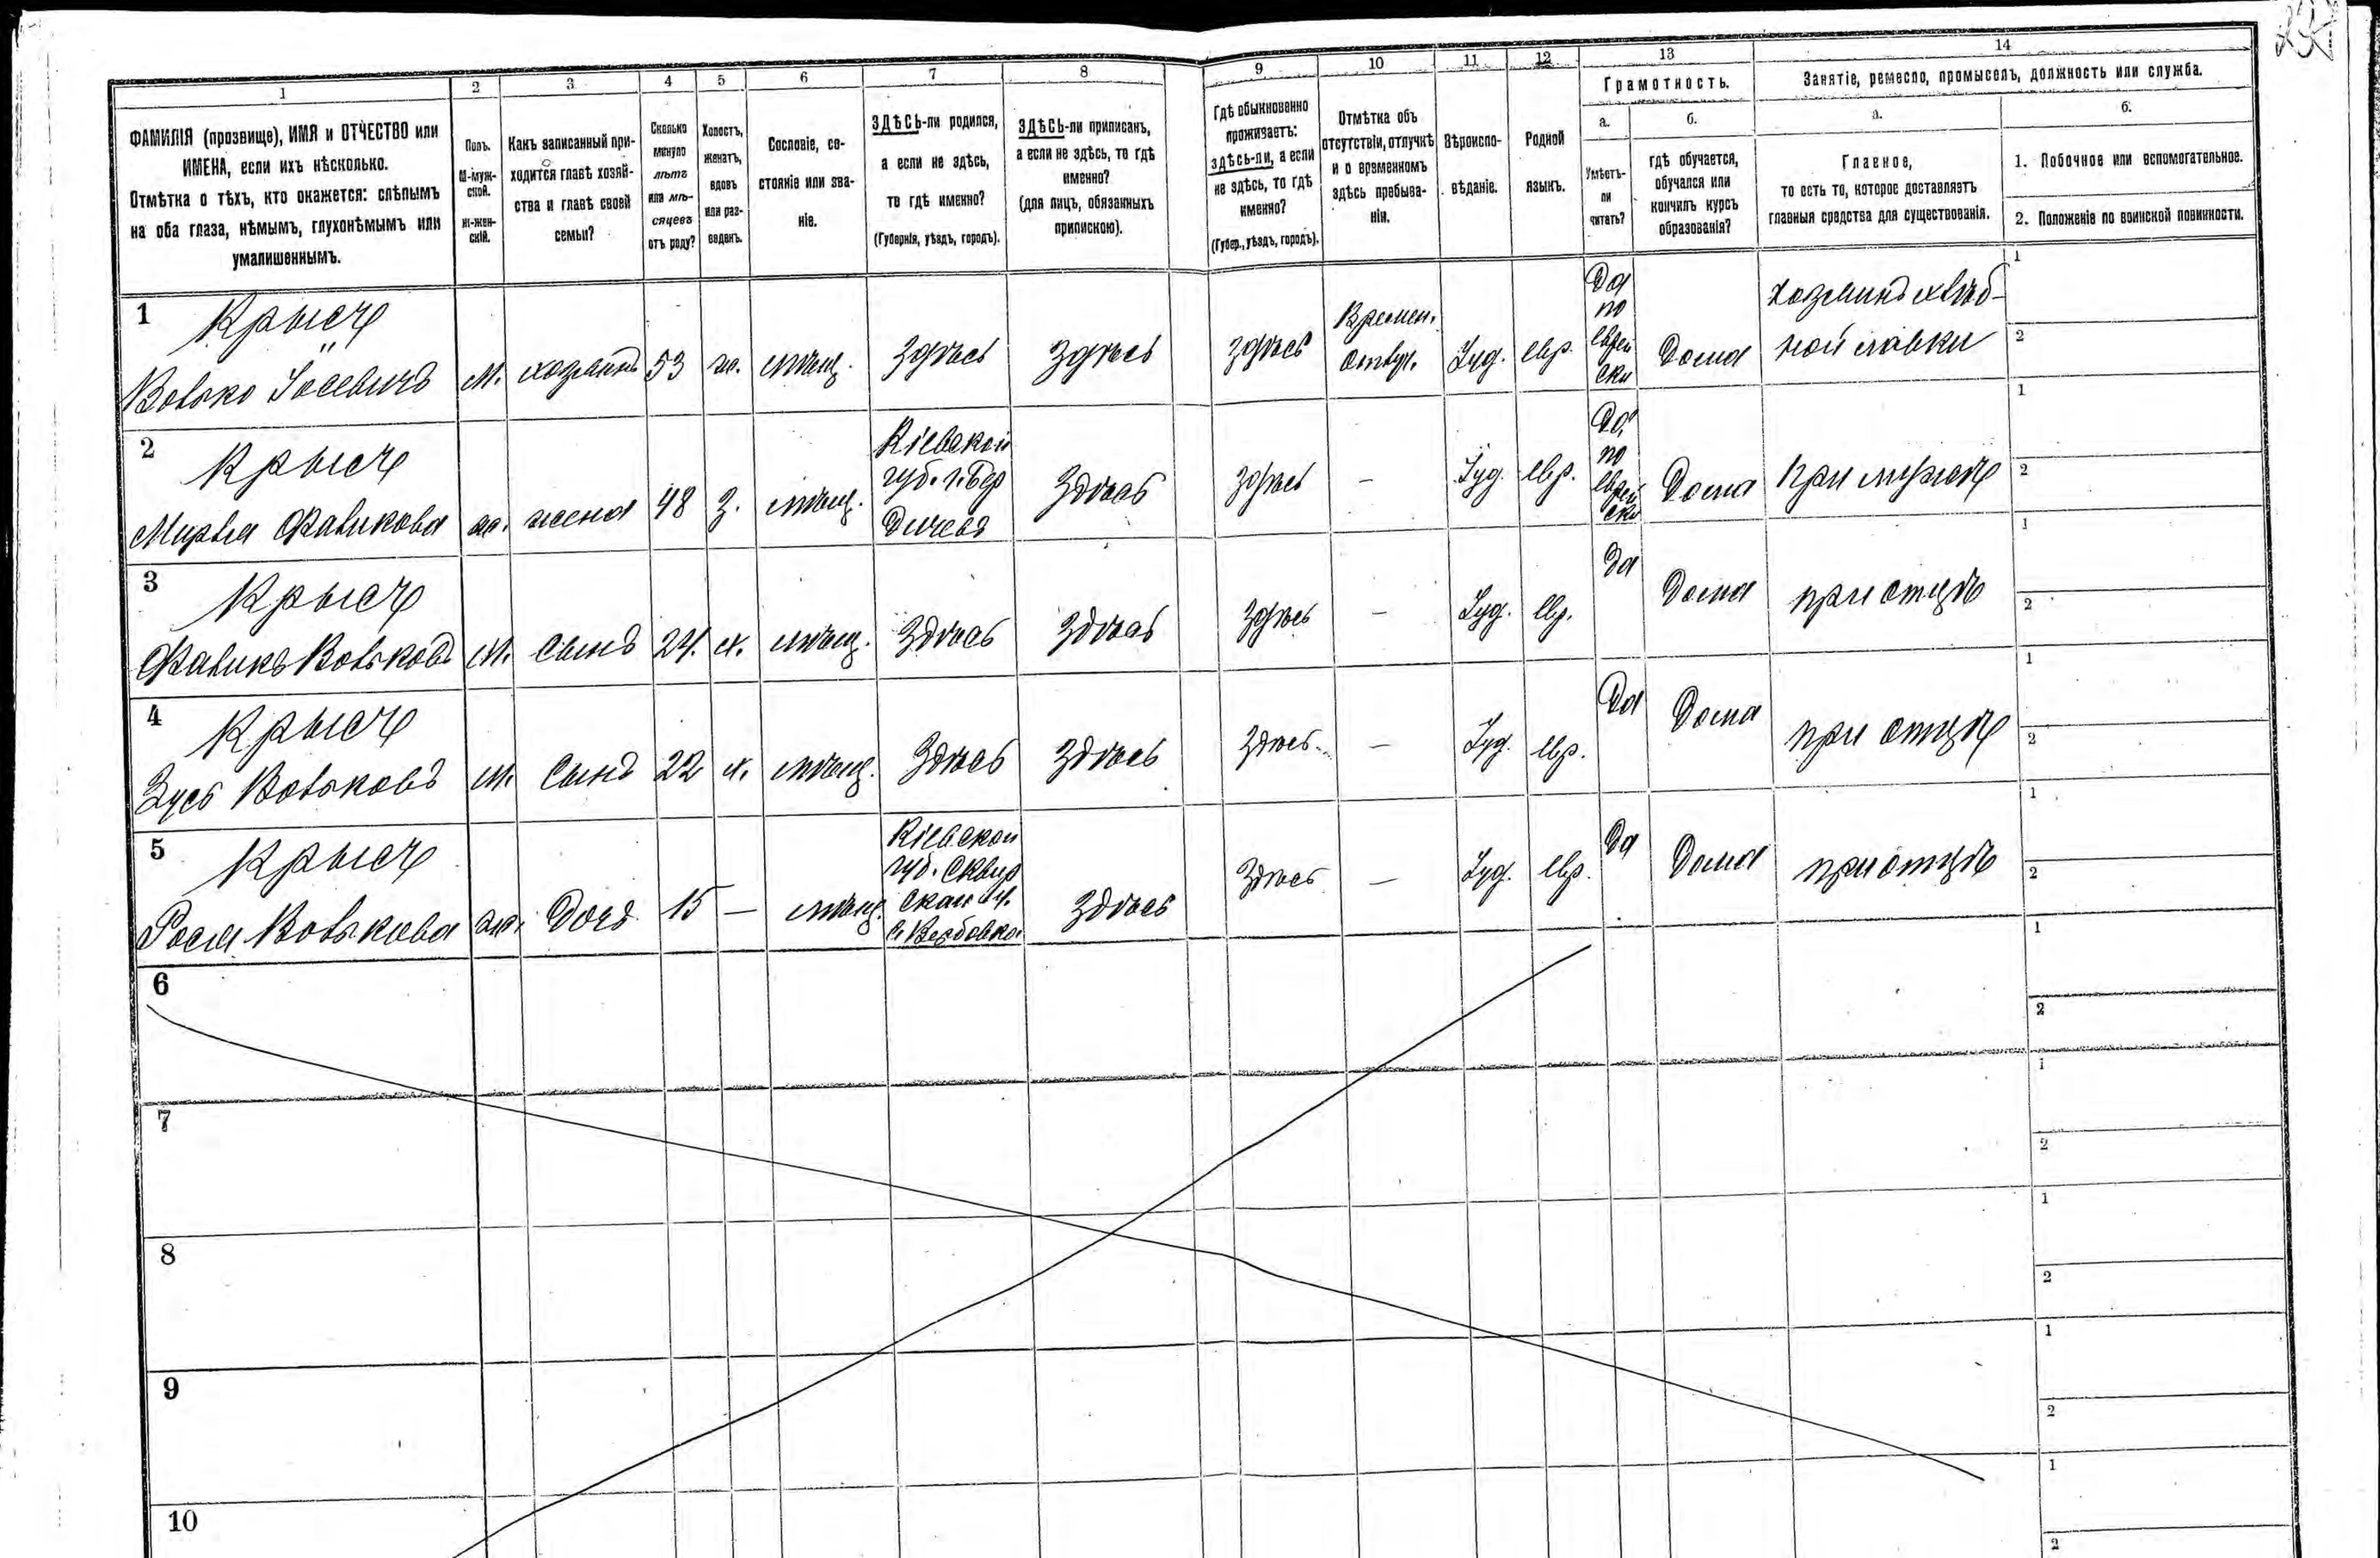 1
2
3
4
5
6
7
8
9
10
11
12
13
14
ФАМИЛІЯ (прозвище), ИМЯ и ОТЧЕСТВО или
ИМЕНА, если ихъ нѣсколько.
Отмѣтка о тѣхъ, кто окажется: слѣпымъ
на оба глаза, нѣмымъ, глухонѣмымъ или
умалишеннымъ.
Полъ.
М-муж-
ской.
Ж-жен-
скій.
Какъ записанный при-
ходится главѣ хозяй-
ства и главѣ своей
семьи?
Сколько
минуло
лѣтъ
или мѣ-
сяцевъ
отъ роду?
Холостъ,
женатъ,
вдовъ
или раз-
веденъ.
Сословіе, со-
стояніе или зва-
ніе.
ЗДѢСЬ-ли родился,
а если не здѣсь,
то гдѣ именно?
(Губернія, уѣздъ, городъ).
ЗДѢСЬ-ли приписанъ,
а если не здѣсь, то гдѣ
именно?
(для лицъ, обязанныхъ
припискою).
Гдѣ обыкновенно
проживаетъ:
здѣсь-ли, а если
не здѣсь, то гдѣ
именно?
(Губер., уѣздъ, городъ).
Отмѣтка объ
отсутствіи, отлучкѣ
и о временномъ
здѣсь пребыва-
ніи.
Вѣроиспо-
вѣданіе.
Родной
языкъ.
Грамотность.
а.
Умѣетъ-
ли
читать?
б.
гдѣ обучается,
обучался или
кончилъ курсъ
образованія?
Занятіе, ремесло, промыселъ, должность или служба.
а.
Главное,
то есть то, которое доставляетъ
главныя средства для существованія.
б.
1. Побочное или вспомогательное.
2. Положеніе по воинской повинности.
1 Крысч
Волько Іосевичъ
м. хозяинъ 53 ж. мѣщ. здѣсь здѣсь здѣсь
Времен.
отлуч.
Іуд. евр.
Да
по
еврей
ски
Дома
хозяинъ хлѣб-
ной лавки
1
2
2 Крысч
Мирля Фаликова
ж. жена 48 З. мѣщ.
Кіевской
губ. г. Бер
дичевъ
здѣсь здѣсь - Іуд. евр.
Да
по
еврей
ски
Дома при мужѣ
1
2
3 Крысч
Фаликъ Вольковъ
м. сынъ 24. х. мѣщ. здѣсь здѣсь здѣсь - Іуд. евр. Да Дома при отцѣ
1
2
4 Крысч
Зусь Вольковъ
м. сынъ 22 х. мѣщ. здѣсь здѣсь здѣсь - Іуд. евр. Да Дома при отцѣ
1
2
5 Крысч
Рося Волькова
ж. дочь 15 - мѣщ.
Кіевской
губ. Сквир
Вербовка
здѣсь здѣсь - Іуд. евр. Да Дома при отцѣ
1
2
6
1
2
7
1
2
8
1
2
9
1
2
10
1
2